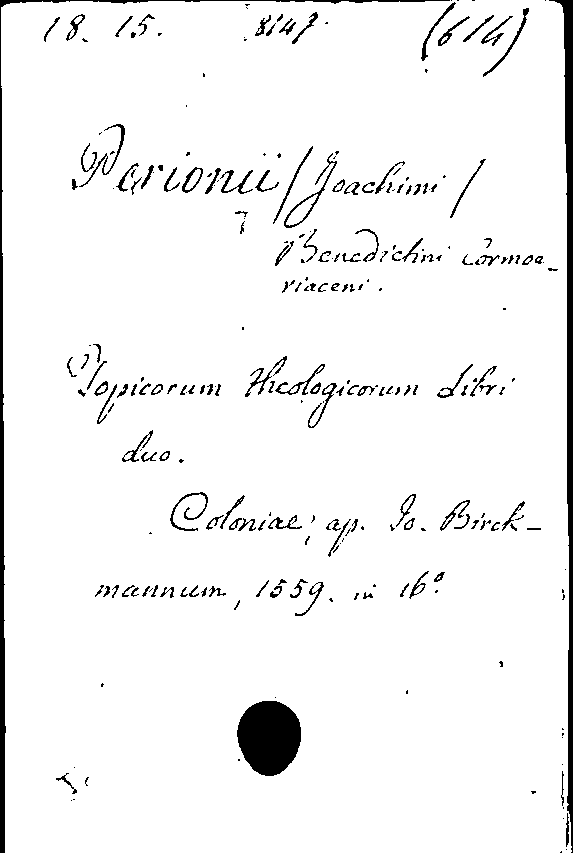 18. 15. 8147. (614)
Perionii / Joachimi /
Benedictini Cormoe-
riaceni.
Topicorum theologicorum Libri
duo.
Coloniae, ap. Jo. Birck-
mannum, 1559. in 16º.